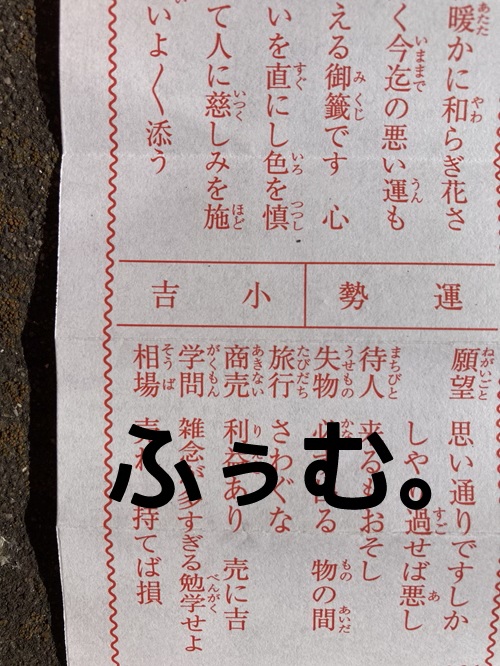 暖かに和らぎ花さ
く今迄の悪い運も
える御籤です 心
いを直にし色を慎
て人に慈しみを施
いよ〱添う
運勢 小吉
願望 思い通りですしか
しやり過せば悪し
待人 来るもおそし
失物 必ず出る 物の間
旅行 さわぐな
商売 利益あり 売に吉
学問 雑念が多すぎる勉学せよ
相場 持てば損
ふぅむ。